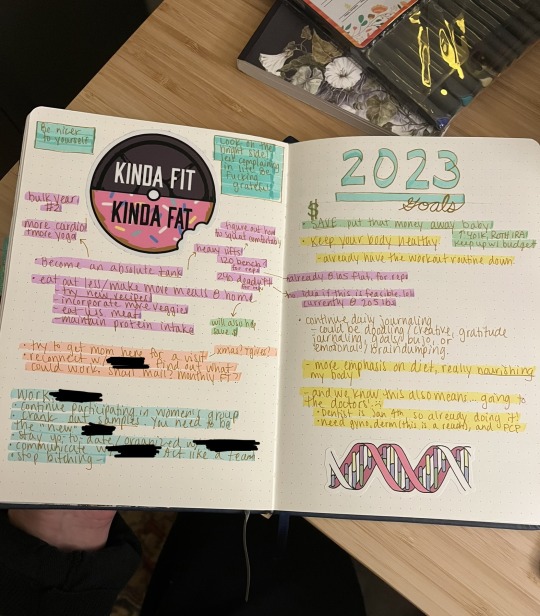 Be nicer
to yourself
Look on the
bright side,
quit complaining
in life. Be
fucking
grateful
KINDA FIT
KINDA FAT
bulk year
#2
more cardio
+more yoga
figure out how
to squat comfortably
heavy lifts!
120 bench
for reps
245 deadlift
for reps
• Become an absolute tank
• eat out less/make more meals @ home
- try new recipes
- incorporate more veggies
- eat less meat
- maintain protein intake
will also help
save $
• try to get mom here for a visit
xmas?
• reconnect w/
Find out what
could work. Snail mail? monthly FT?
Work
• continue participating in women's group
• crank out samples. You need to be
the "new
• stay up to date/organized w/
• communicate w/
Act like a team.
• stop bitching
2023
Goals
$
• SAVE put that money away baby
↑401K, ROTH IRA
keep up w/ budget
• Keep your body healthy
- already have the workout routine down.
already @ 105 flat, for reps
no idea if this is feasible lol
currently @ 205 lbs
• continue daily journaling
- could be doodling/creative, gratitude
journaling, goals/bujo, or
emotional/braindumping.
- more emphasis on diet, really nourishing
my body
- and we know this also means... going to
the doctors
• Dentist is Jan 4th, so already doing it!
• need gyno, derm (this is a reach), and PCP